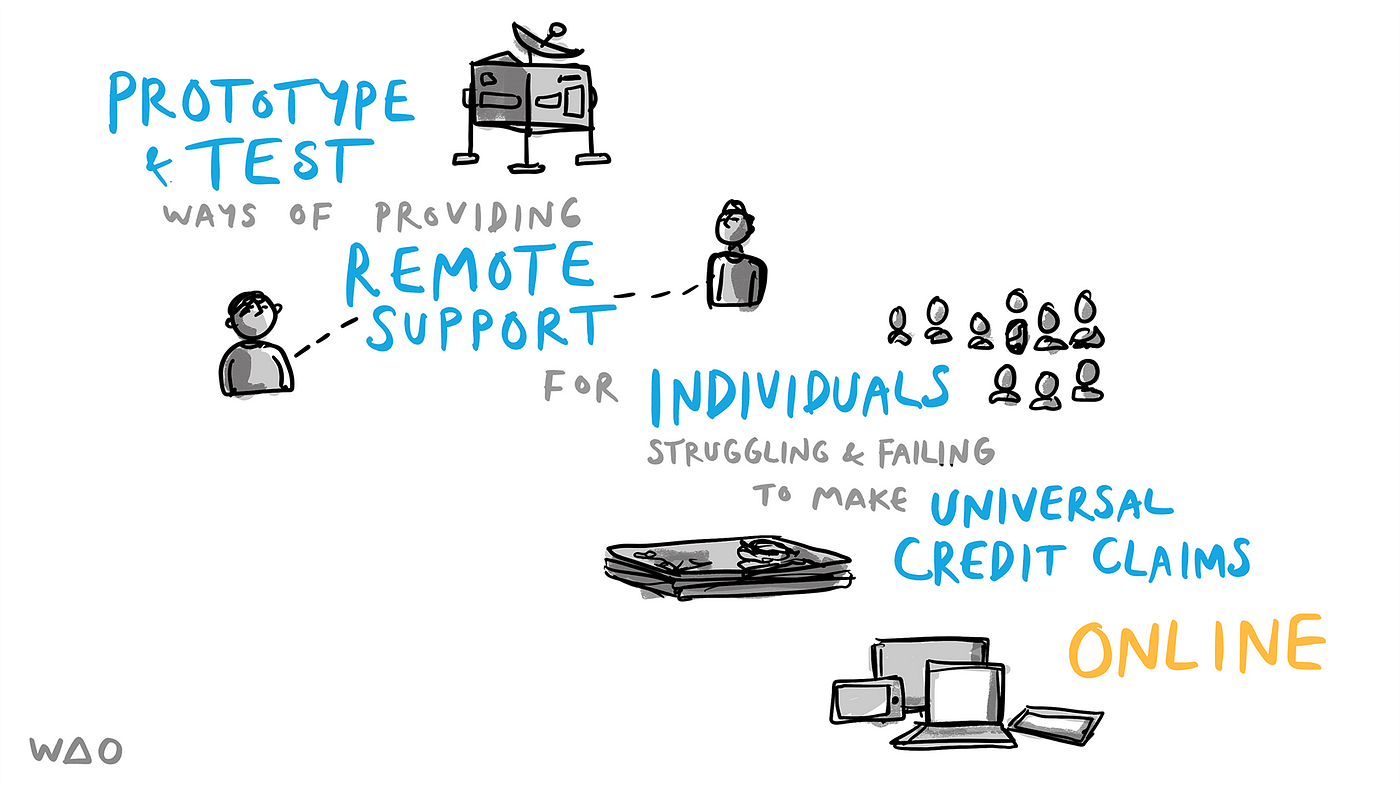 PROTOTYPE
& TEST
WAYS OF PROVIDING
REMOTE
SUPPORT
FOR INDIVIDUALS
STRUGGLING & FAILING
TO MAKE UNIVERSAL
CREDIT CLAIMS
ONLINE
WAO